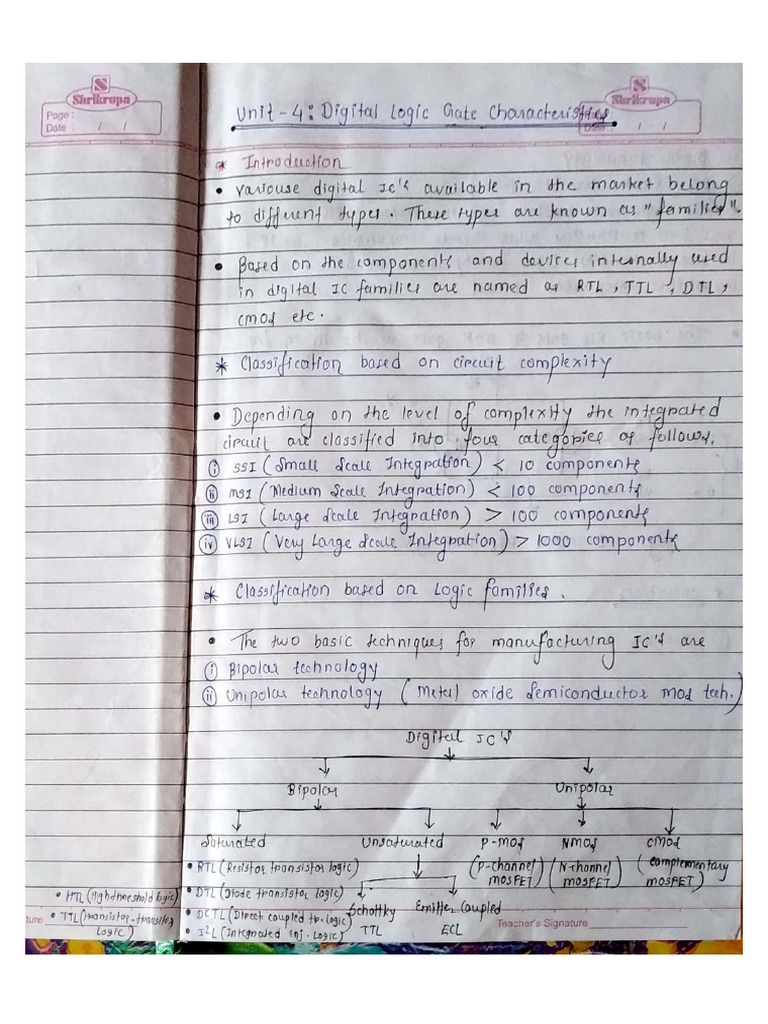 Shrikrupa
Page :
Date : / /
Shrikrupa
Date : / /
Unit - 4 : Digital Logic Gate Characteristics
* Introduction
• Variouse digital IC's available in the market belong
to different types. These types are known as "families".
• Based on the components and devices internally used
in digital IC families are named as RTL, TTL, DTL,
CMOS etc.
* Classification based on circuit complexity
• Depending on the level of complexity the integrated
circuit are classified into four categories as follows.
(i) SSI (Small Scale Integration) < 10 components
(ii) MSI (Medium Scale Integration) < 100 components
(iii) LSI (Large Scale Integration) > 100 components
(iv) VLSI (Very Large Scale Integration) > 1000 components
* Classification based on Logic families.
• The two basic techniques for manufacturing IC's are
(i) Bipolar technology
(ii) Unipolar technology (Metal oxide Semiconductor mos tech.)
Digital IC's
Bipolar Unipolar
Saturated Unsaturated P-MOS NMOS CMOS
• RTL (Resistor transistor logic) (P-channel MOSFET) (N-channel MOSFET) (complementary MOSFET)
• DTL (Diode transistor logic)
• DCTL (Direct coupled tr. logic)
• I²L (Integrated inj. Logic)
• HTL (High threshold logic)
• TTL (transistor-transistor
Logic)
Schottky TTL
Emitter Coupled ECL
ture
Teacher's Signature